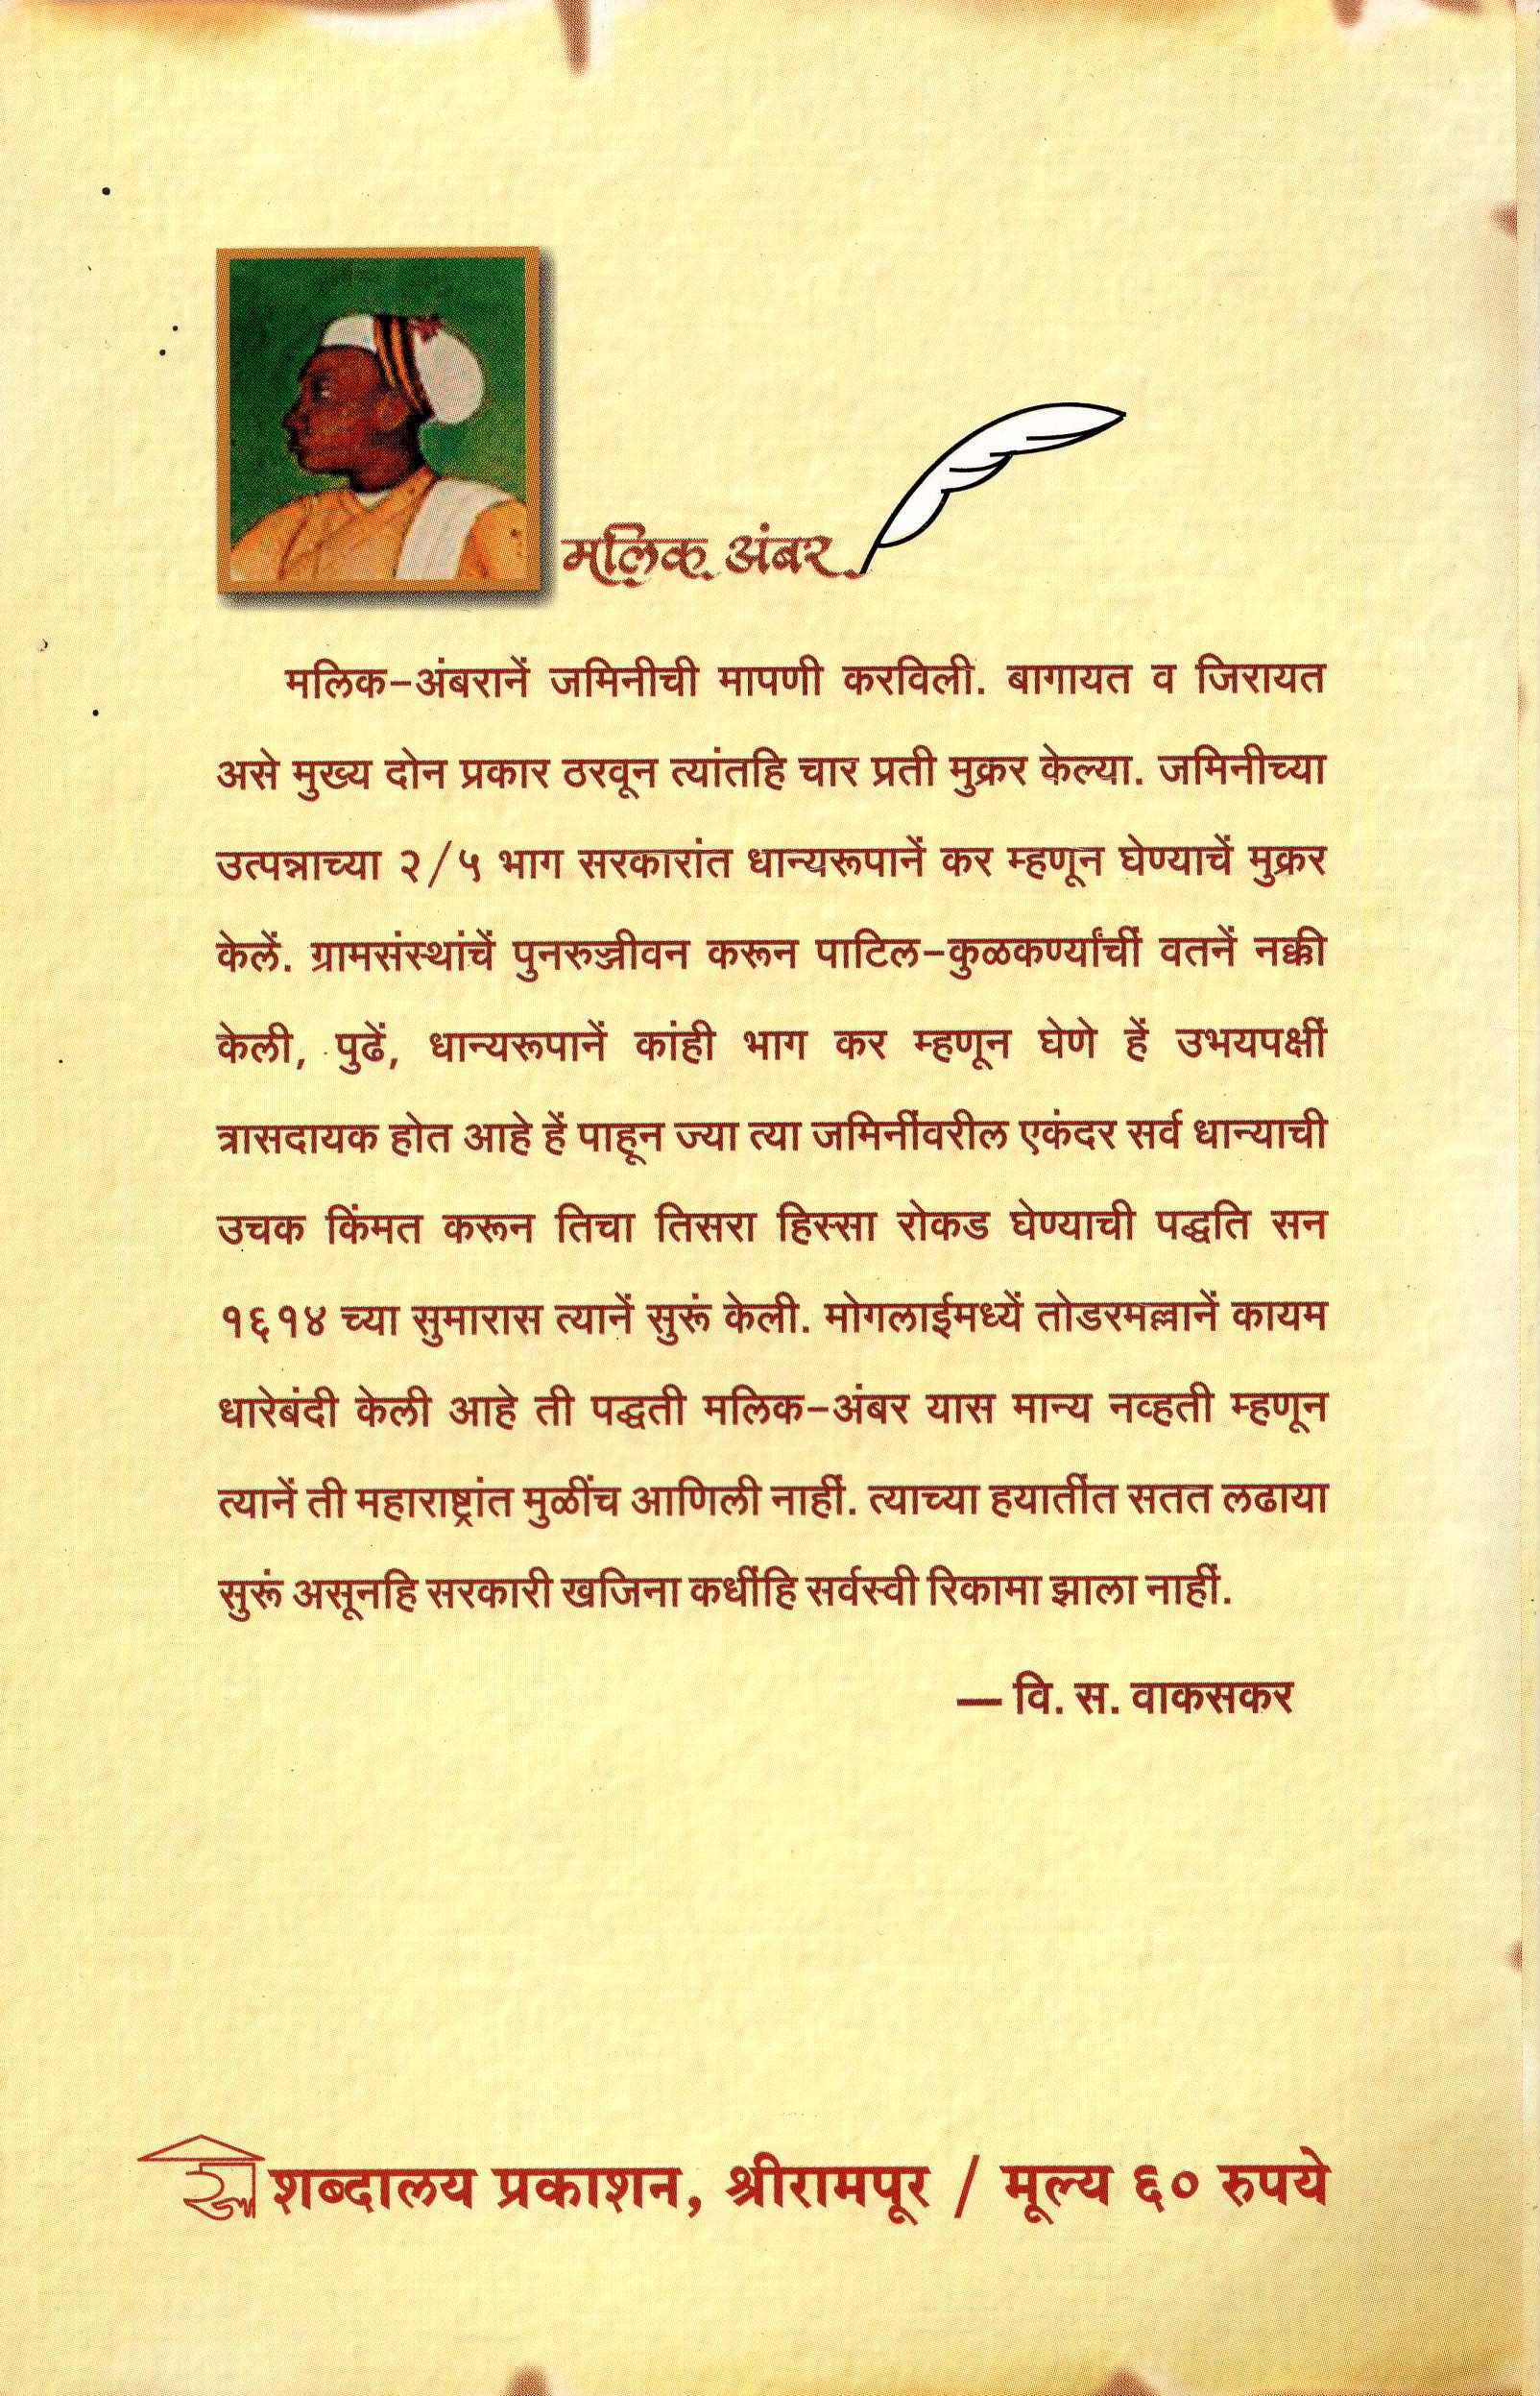 मलिक अंबर
मलिक-अंबरानें जमिनीची मापणी करविली. बागायत व जिरायत
असे मुख्य दोन प्रकार ठरवून त्यांतहि चार प्रती मुक्रर केल्या. जमिनीच्या
उत्पन्नाच्या २/५ भाग सरकारांत धान्यरूपानें कर म्हणून घेण्याचें मुक्रर
केलें. ग्रामसंस्थांचें पुनरुज्जीवन करून पाटिल-कुळकर्ण्यांचीं वतनें नक्की
केली, पुढें, धान्यरूपानें कांही भाग कर म्हणून घेणे हें उभयपक्षीं
त्रासदायक होत आहे हें पाहून ज्या त्या जमिनींवरील एकंदर सर्व धान्याची
उचक किंमत करून तिचा तिसरा हिस्सा रोकड घेण्याची पद्धति सन
१६१४ च्या सुमारास त्यानें सुरूं केली. मोगलाईमध्यें तोडरमल्लानें कायम
धारेबंदी केली आहे ती पद्धती मलिक-अंबर यास मान्य नव्हती म्हणून
त्यानें ती महाराष्ट्रांत मुळींच आणिली नाहीं. त्याच्या हयातींत सतत लढाया
सुरूं असूनहि सरकारी खजिना कधींहि सर्वस्वी रिकामा झाला नाहीं.
— वि. स. वाकसकर
शब्दालय प्रकाशन, श्रीरामपूर / मूल्य ६० रुपये